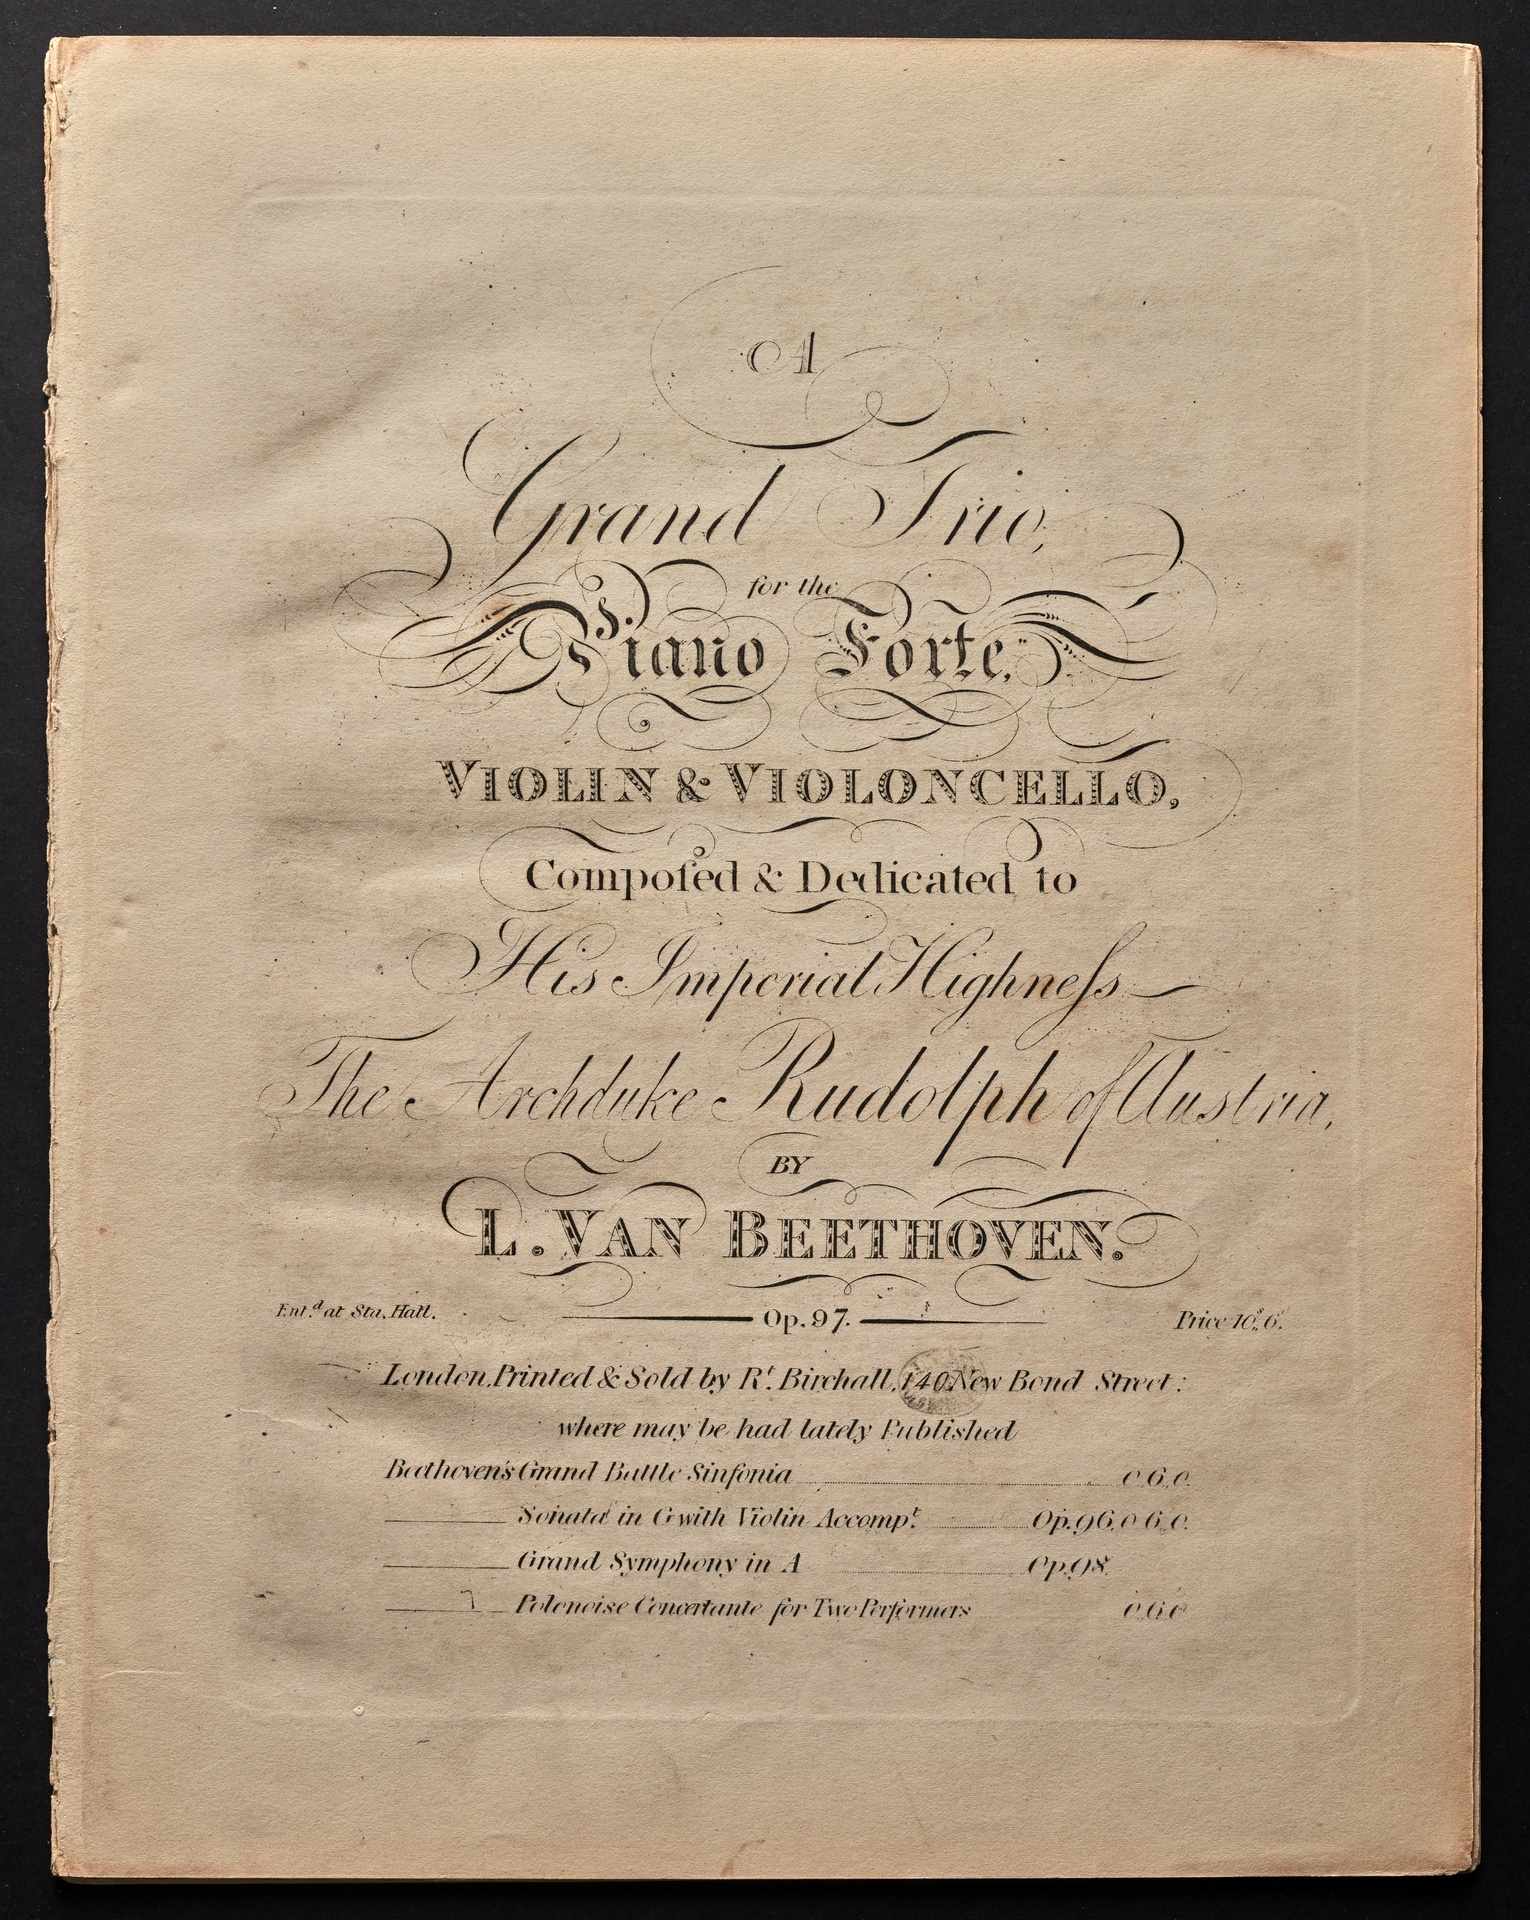 A
Grand Trio,
for the
Piano Forte,
VIOLIN & VIOLONCELLO,
Compoſed & Dedicated to
His Imperial Highneſs
The Archduke Rudolph of Austria,
BY
L. VAN BEETHOVEN.
Ent.ᵈ at Sta. Hall. Op. 97. Price 10ˢ,, 6ᵈ.
London, Printed & Sold by Rᵗ. Birchall, 140 New Bond Street:
where may be had lately Published
Beethoven's Grand Battle Sinfonia 0,,6,,0.
Sonata in G with Violin Accompᵗ. Op. 96. 0,,6,,0.
Grand Symphony in A Op. 98.
Polonoise Concertante for Two Performers 0,,6,,0